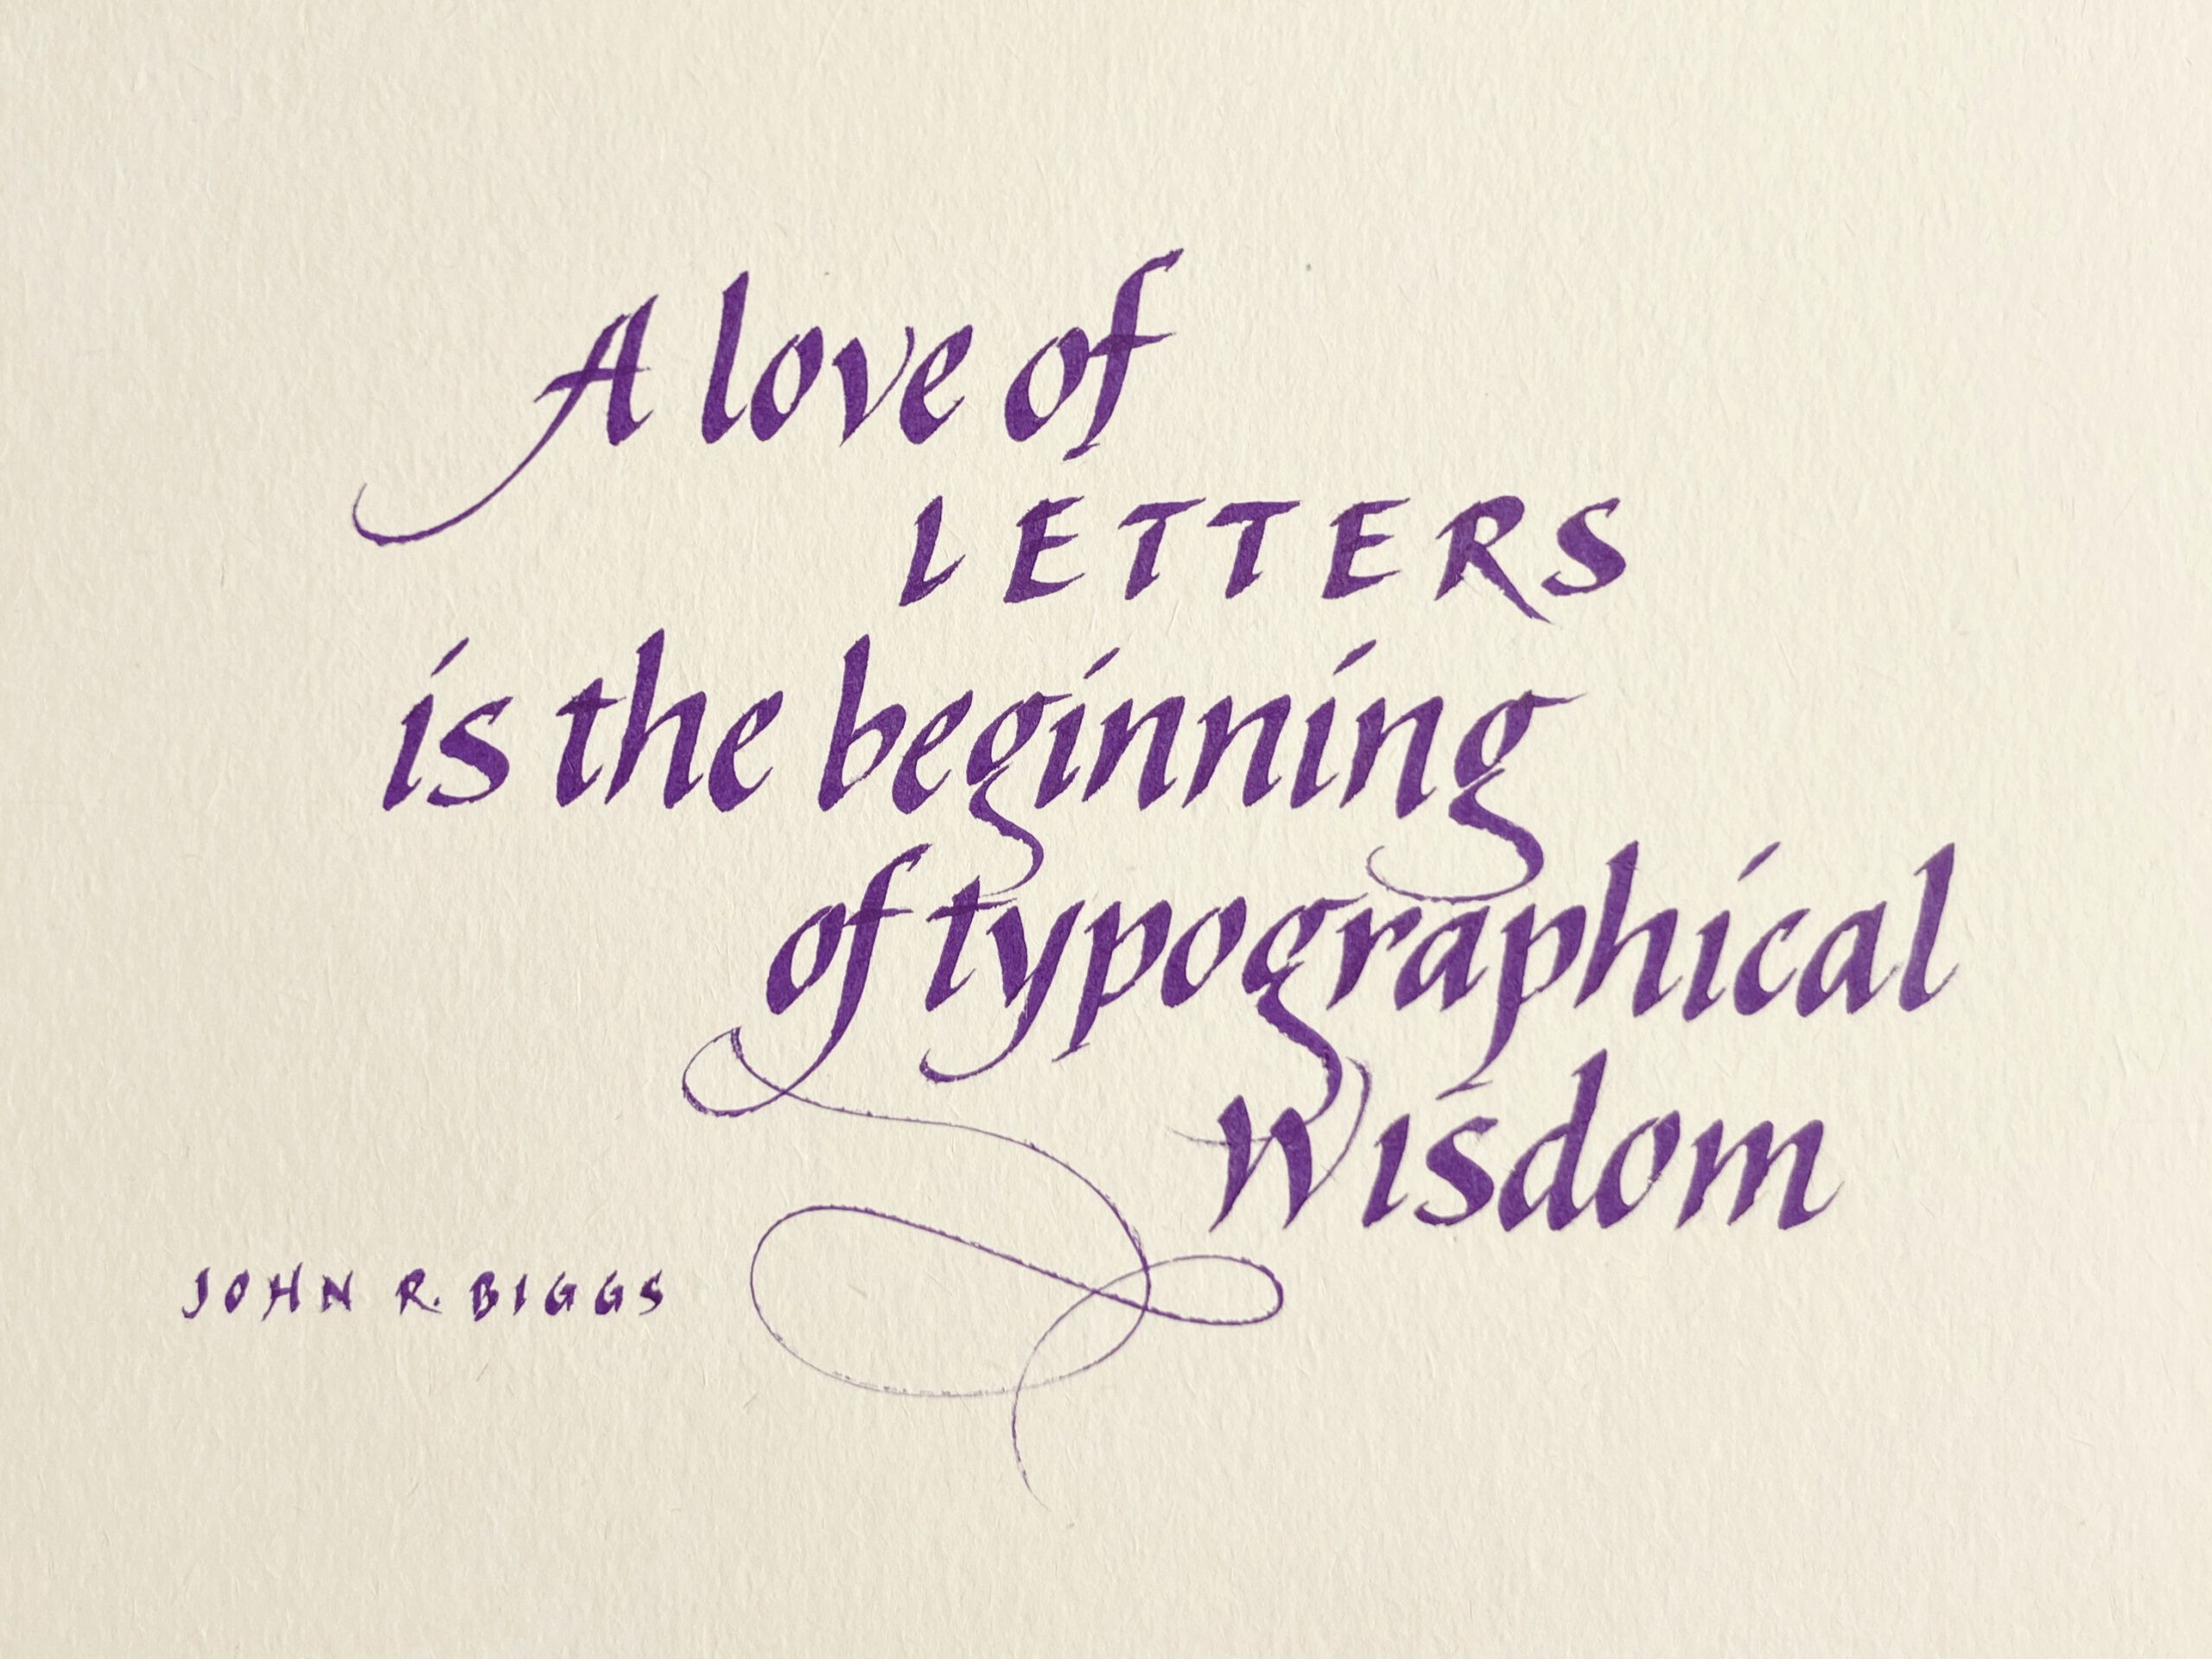 A love of
LETTERS
is the beginning
of typographical
Wisdom
JOHN R. BIGGS